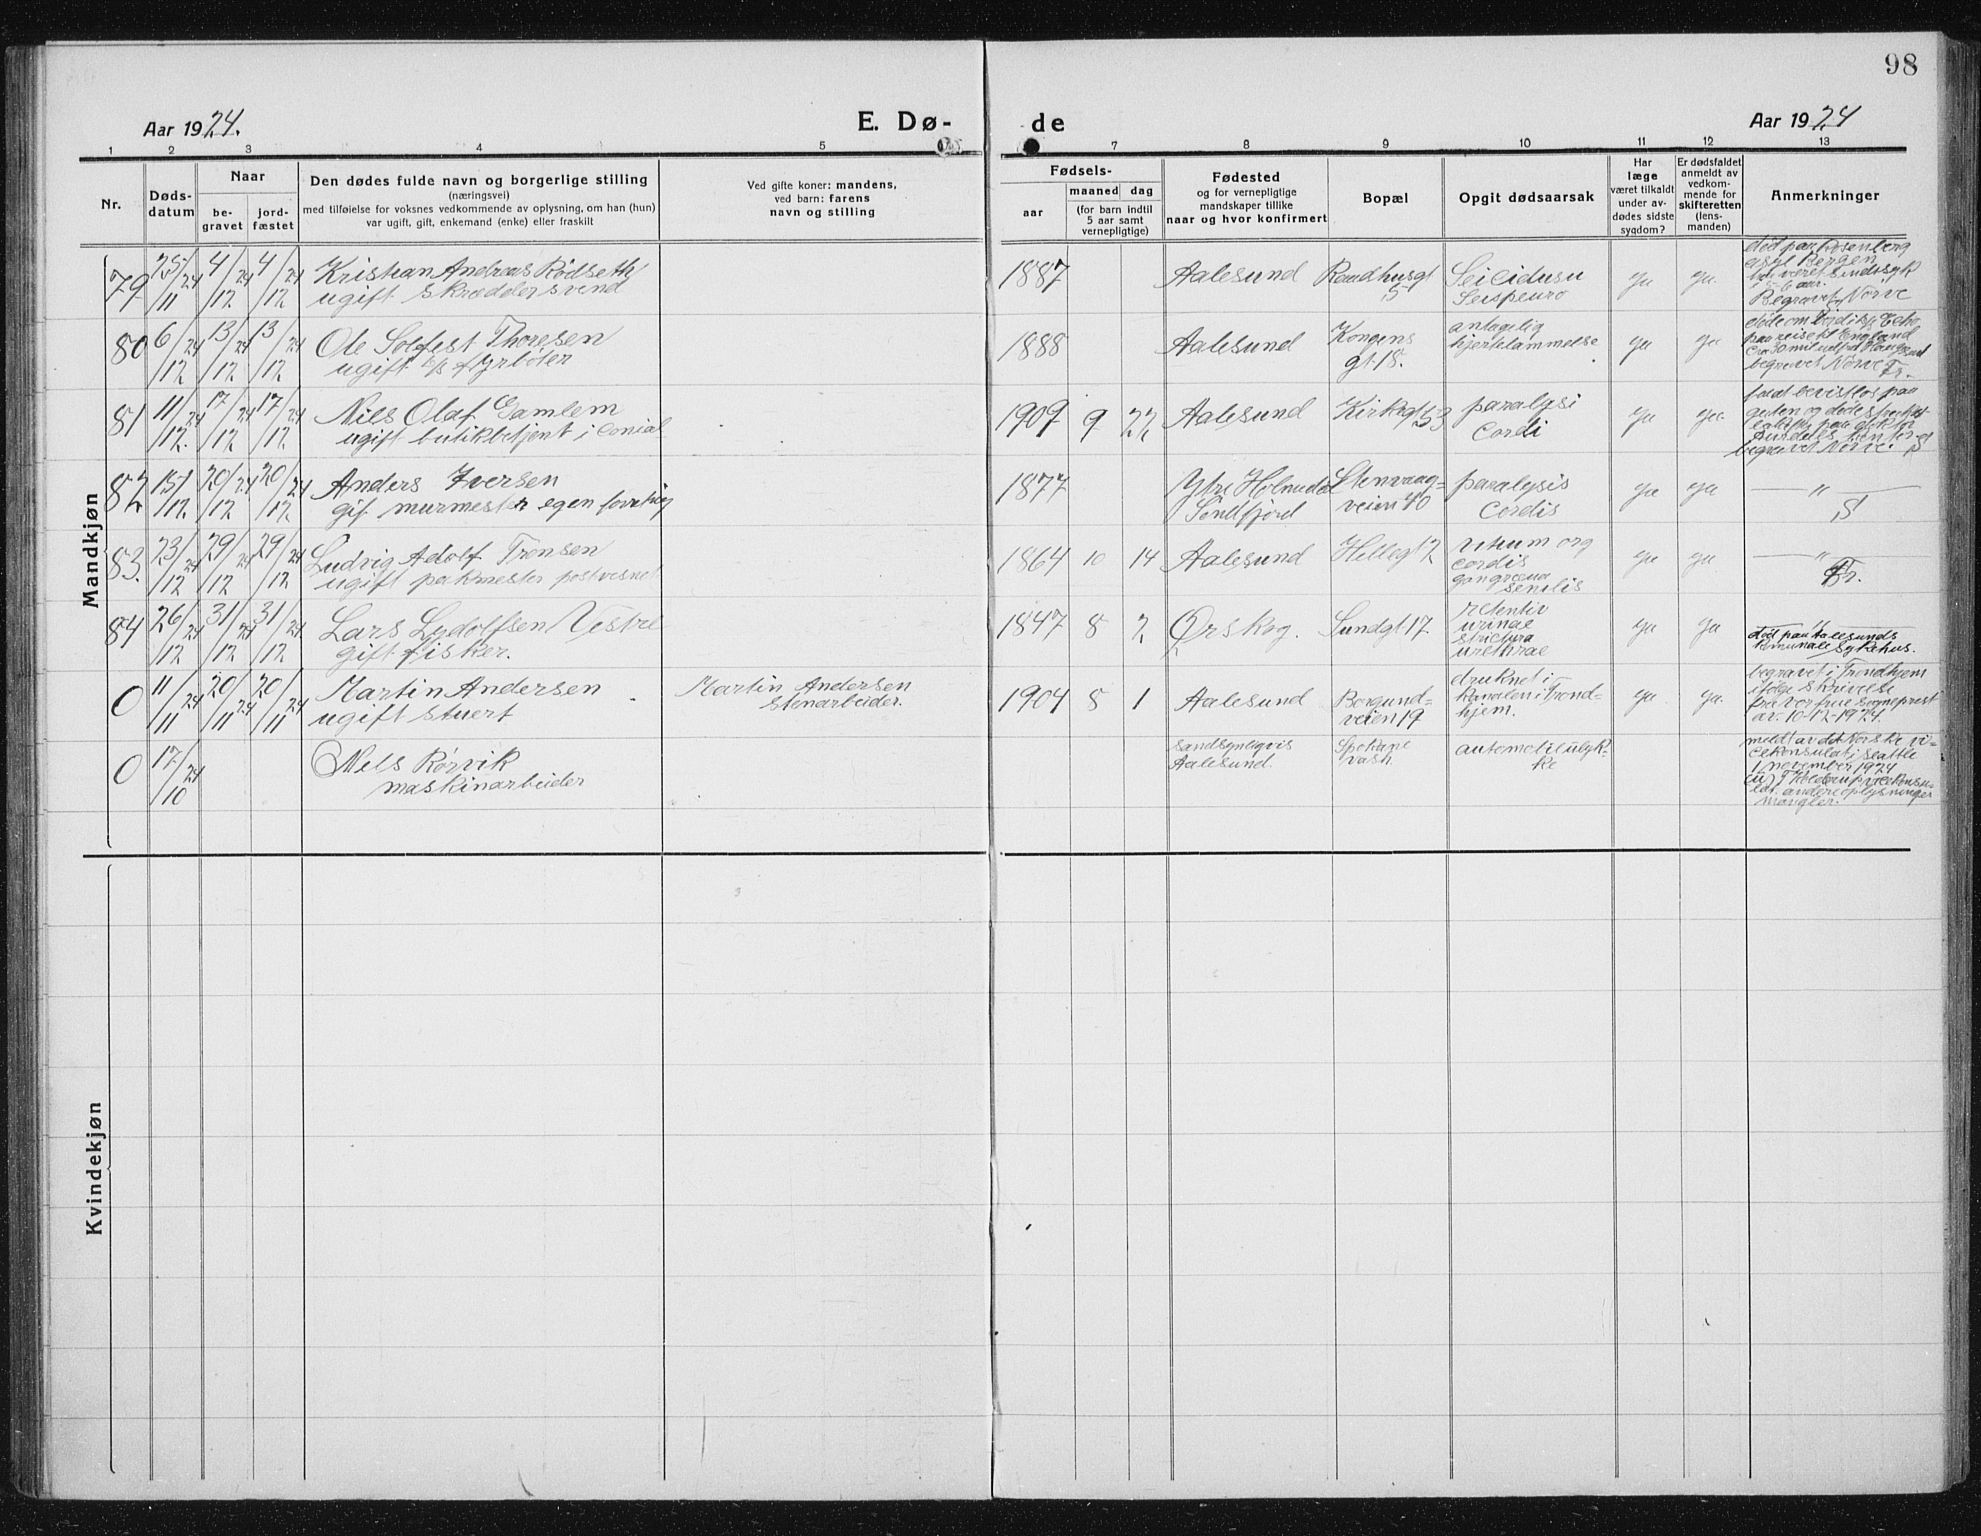 98
Aar 1924.
E. Dø-
de
Aar 1924
1 2 3 4 5 7 8 9 10 11 12 13
Nr.
Døds-
datum
Naar
be-
gravet
jord-
fæstet
Den dødes fulde navn og borgerlige stilling
(næringsvei)
med tilføielse for voksnes vedkommende av oplysning, om han (hun)
var ugift, gift, enkemand (enke) eller fraskilt
Ved gifte koner: mandens,
ved barn: farens
navn og stilling
Fødsels-
aar
maaned dag
(for barn indtil
5 aar samt
vernepligtige)
Fødested
og for vernepligtige
mandskaper tillike
naar og hvor konfirmert
Bopæl
Opgit dødsaarsak
Har
læge
været tilkaldt
under av-
dødes sidste
sygdom?
Er dødsfaldet
anmeldt av
vedkom-
mende for
skifteretten
(lens-
manden)
Anmerkninger
Mandkjøn
79 25/11 24 4/12 24 4/12 24 Kristian Andreas Rødseth
ugift skræddersvend
1887 Aalesund Raadhusgt
5
ja ja.
død paa Rosenberg
asyl Bergen
Begravet Nørve
80 6/12 24 13/12 24 13/12 24 Ole Solfest Thoresen
ugift fyrbøter
1888 Aalesund Kongens
gt. 18.
antagelig
hjertelammelse
ja ja
begravet Nørve
Fr.
81 11/12 24 17/12 24 17/12 24 Nils Olaf Gamlem
ugift butikbetjent i
1909 9 22 Aalesund Kirkegt 53 paralysi
Cordi
ja ja
gaten og døde
begravet Nørve. S
82 15/12 20/12 24 20/12 24 Anders Iversen
gif. murmester egen
1877 Ytre Holmedal
Søndfjord
Stenvaag-
veien 40
paralysis
Cordis
ja ja
— " —
S
83. 23/12 24 29/12 24 29/12 24 Ludvig Adolf Tronsen
ugift pakmester postvesnet
1864 10 14 Aalesund Hellegt 2 vitium org
cordis
gangræna
senilis
ja ja
— " —
Fr.
84 26/12 24 31/12 24 31/12 24 Lars Lydolfsen Vestre
gift fisker.
1847 8 2 Ørskog. Sundgt 17 retentio
urinae
strictura
urethrae
ja ja
død paa Aalesunds
Komunale Sykehus.
0 11/11 24 20/11 24 20/11 24 Martin Andersen
ugift stuert
Martin Andersen
stenarbeider.
1904 8 1 Aalesund Borgund-
veien 19
druknet i
Kanalen i Trond-
hjem.
ja ja.
begravet i Trondhjem
ifølge skrivelse
fra Vor frue sogneprest
av 10-12-1924.
0 17/10 24 Nels Rørvik
maskinarbeider
sandsynligvis
Aalesund.
Spokane
Vash
automobilulyk-
ke
meldt av det Norske vi-
cekonsulat i Seattle
1 november 1924
andre oplysninger
mangler.
Kvindekjøn